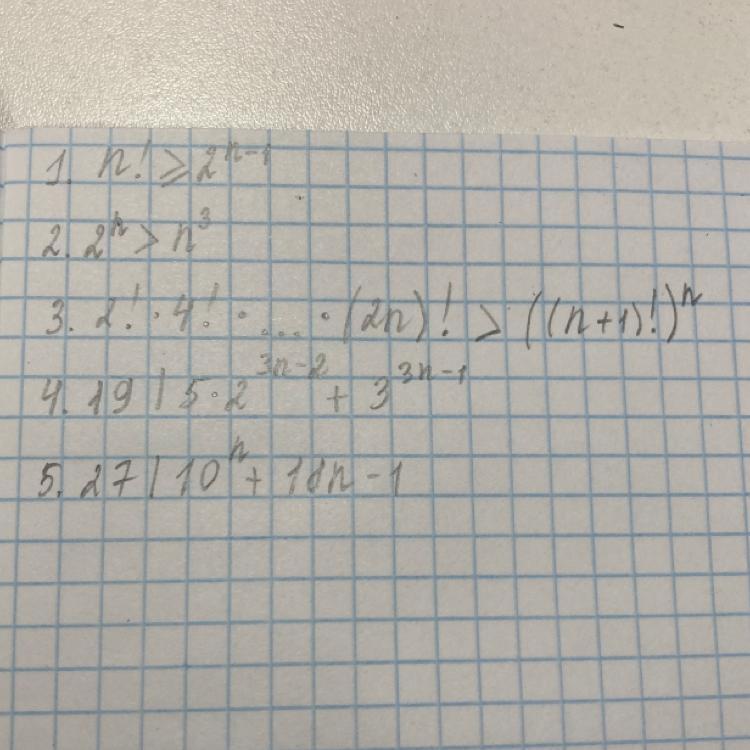 1. n! ≥ 2^{n-1}
2. 2^n > n^3
3. 2! · 4! · ... · (2n)! > ((n+1)!)^n
4. 19 | 5·2^{3n-2} + 3^{3n-1}
5. 27 | 10^n + 18n - 1